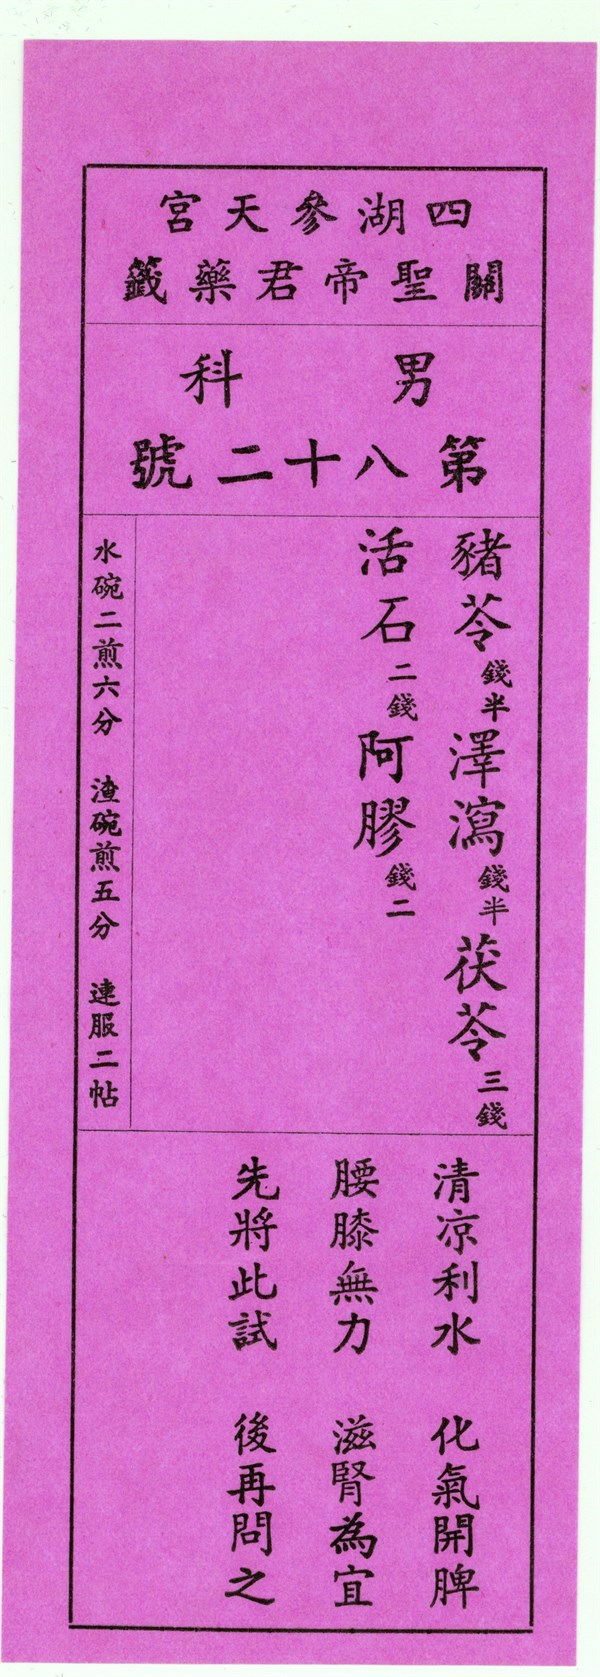 四湖參天宮
關聖帝君藥籤
男科
第八十二號
豬苓錢半澤瀉錢半茯苓三錢
活石二錢阿膠錢二
水碗二煎六分 渣碗煎五分 連服二帖
清凉利水 化氣開脾
腰膝無力 滋腎為宜
先將此試 後再問之